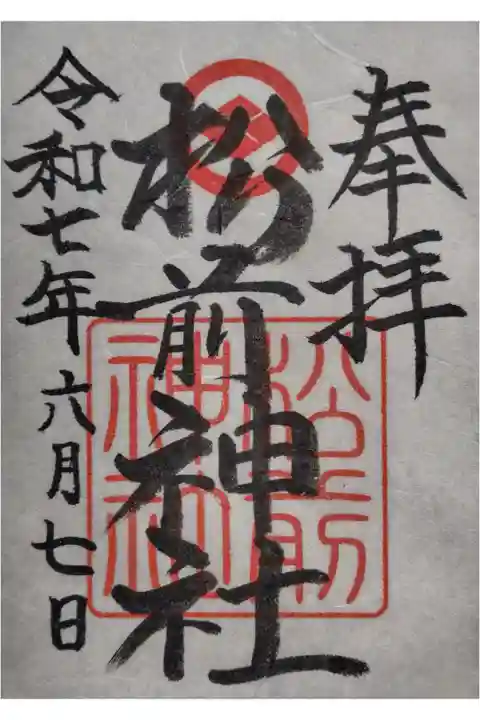 奉拝
松前神社
松前
神社
令和七年六月七日